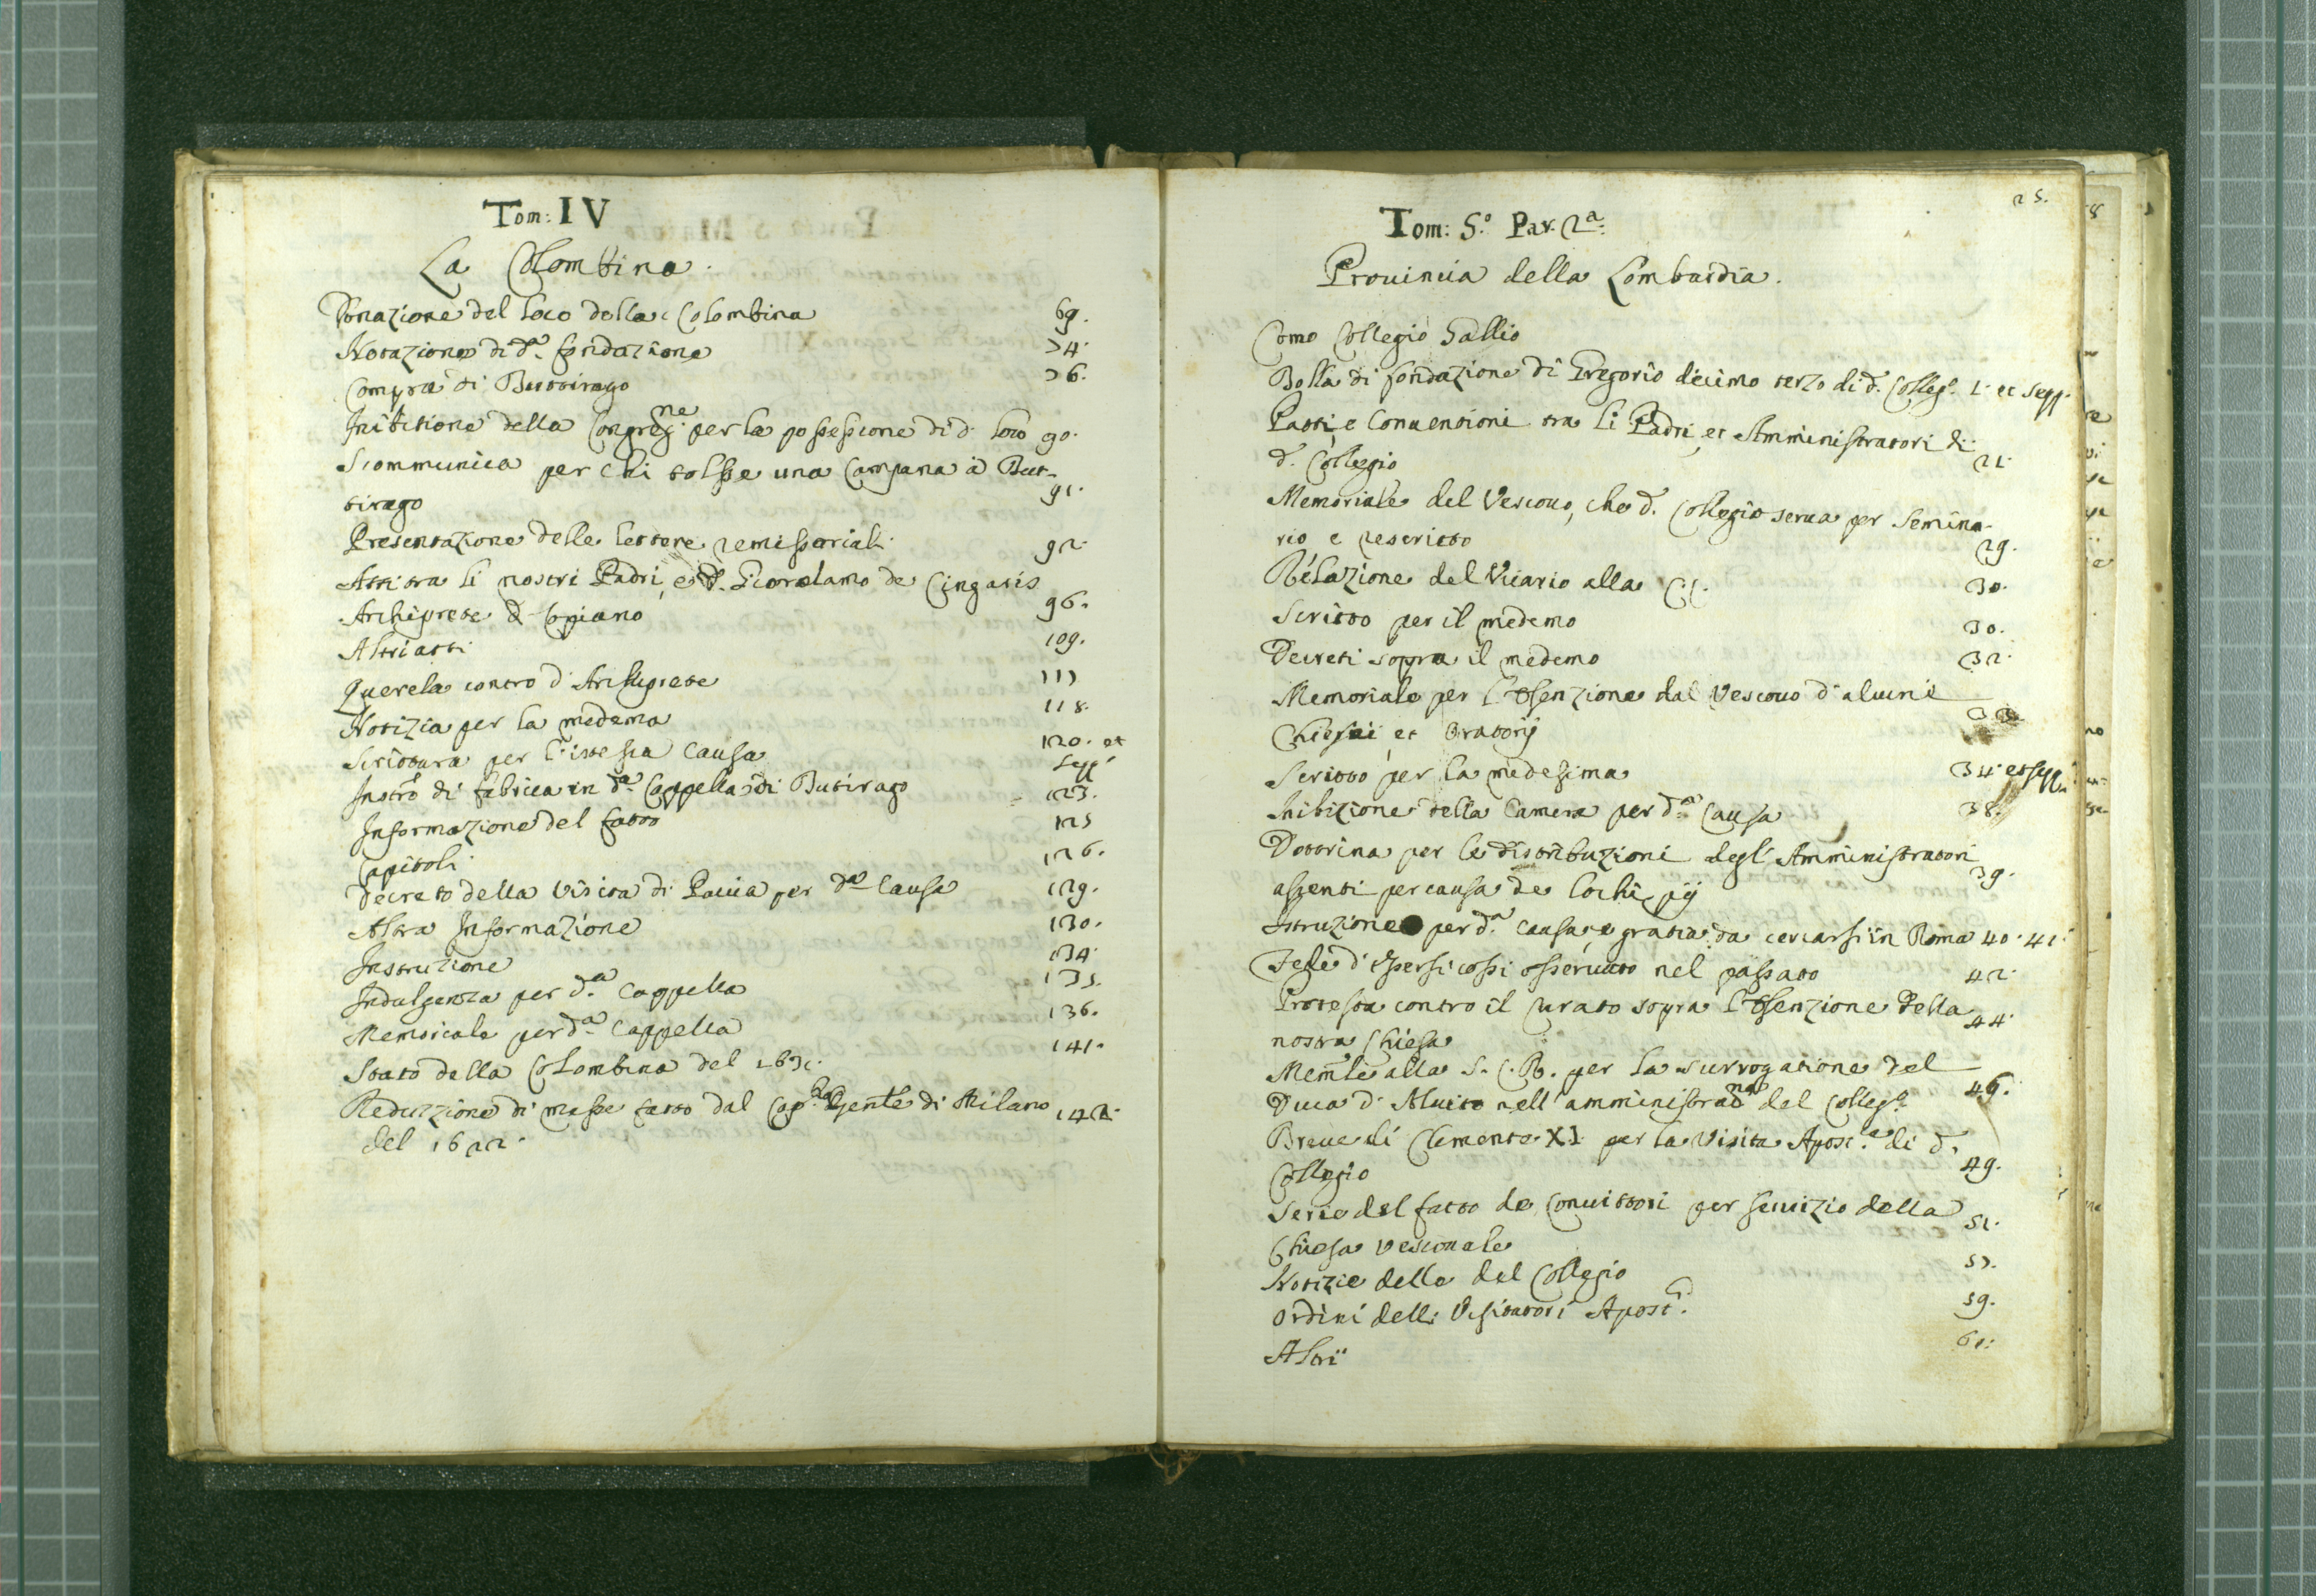 Tom: IV
La Colombina.
Donazione del loco della Colombina 69.
Notazione di d.a fondazione 74.
Compra di Buttirago 76.
Inibitione della Congreg.ne per la possessione di d. loco 90.
Scommunica per chi tolsse una Campana à But-
tirago 91.
Presentazione delle lettere remissoriali 92.
Atti tra li nostri Padri, e d. Gierolamo de Cingaris
Archiprete di Copiano 96.
Altri atti 109.
Querela contro d. Archiprete 117
Notizia per la medema 118.
Scrittura per l'istessa Causa 120. et
seqq.
Instro di fabrica in d.a Cappella di Butirago 123.
Informazione del fatto 125
Capitoli 126.
Decreto della Visita di Pavia per d.a Causa 129.
Altra Informazione 130.
Instruzione 134.
Indulgenza per d.a Cappella 135.
Memoriale per d.a Cappella 136.
Stato della Colombina del 1631. 141.
Reduzzione di messe fatto dal Cap.lo Gen.le di Milano
del 1622. 142.
25.
Tom: 5.o Par. 2.a
Provincia della Lombardia.
Como Collegio Gallio
Bolla di fondazione di Gregorio decimo terzo di d. Colleg.o 1. et seqq.
Patti, e Conventioni tra li Padri, et Amministratori di
d. Collegio 21.
Memoriale del Vescovo, che d. Collegio serva per Semina-
rio e rescritto 29.
Relazione del Vicario alla C.C. 30.
Scritto per il medemo 30.
Decreti sopra il medemo 32.
Memoriale per l'Essenzione dal Vescovo d'alcune
Chiese, et Oratorij
Scritto per la medesima 34. et seqq.
Inibizione della Camera per d.a Causa 38.
Dottrina per le distribuzioni degl'Amministratori
assenti per causa de lochi pij 39.
Istruzione per d.a causa, e gratia da cercarsi in Roma 40. 41.
Fede d'essersi cossi osservato nel passato 42.
Protesta contro il Curato sopra l'Essenzione della
nostra Chiesa 44.
Memle alla S. C. R. per la surrogatione del
Duca d'Alvito nell'amministrac.ne del Colleg.o 46.
Breve di Clemente XI per la Visita Apost.a di d.
Collegio 49.
Serie del fatto de Convittori per servizio della
Chiesa Vescovale 51.
Notizie delle del Collegio 57.
Ordini delli Visitatori Apost.ci 59.
Altri 61.